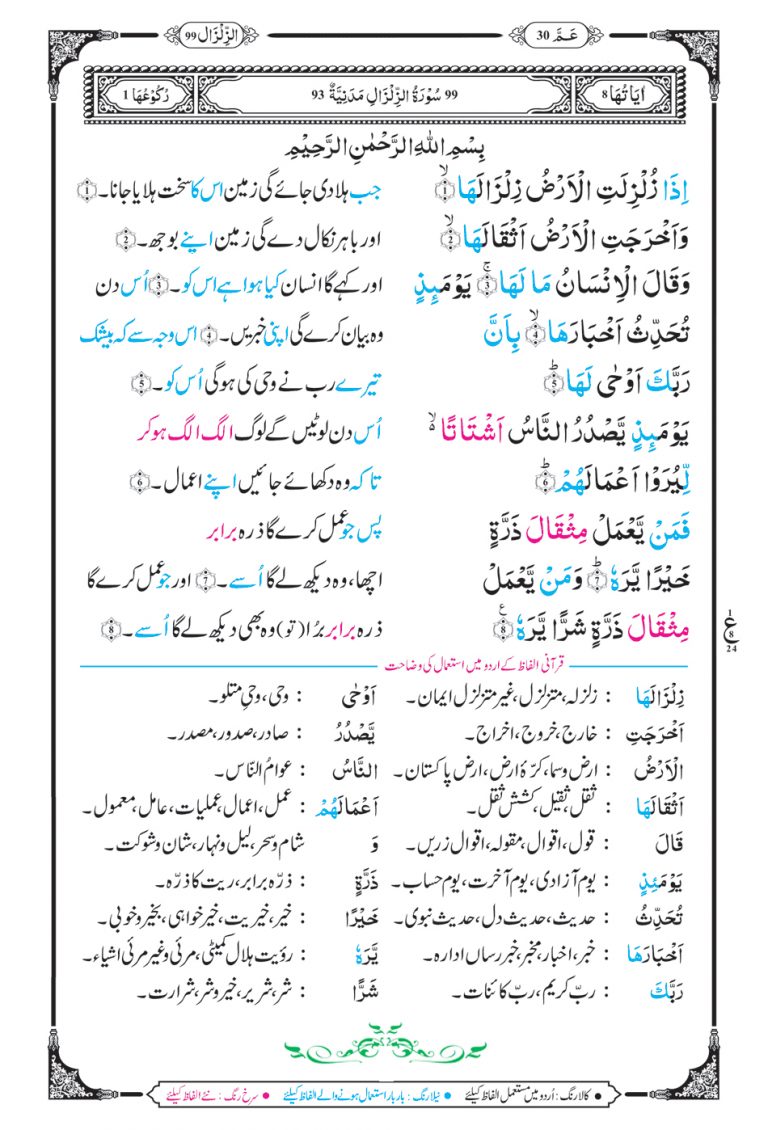 الزِّلْزَال 99
عَمَّ 30
اٰيَاتُهَا 8
99 سُوْرَةُ الزِّلْزَالِ مَدَنِيَّةٌ 93
رُكُوْعُهَا 1
بِسْمِ اللّٰهِ الرَّحْمٰنِ الرَّحِيْمِ
اِذَا زُلْزِلَتِ الْاَرْضُ زِلْزَالَهَا ۙ﴿1﴾ جب ہلا دی جائے گی زمین اس کا سخت ہلایا جانا۔﴿1﴾
وَاَخْرَجَتِ الْاَرْضُ اَثْقَالَهَا ۙ﴿2﴾ اور باہر نکال دے گی زمین اپنے بوجھ۔﴿2﴾
وَقَالَ الْاِنْسَانُ مَا لَهَا ۚ﴿3﴾ يَوْمَىِٕذٍ اور کہے گا انسان کیا ہوا ہے اس کو۔﴿3﴾ اُس دن
تُحَدِّثُ اَخْبَارَهَا ۙ﴿4﴾ بِاَنَّ وہ بیان کرے گی اپنی خبریں۔﴿4﴾ اس وجہ سے کہ بیشک
رَبَّكَ اَوْحٰى لَهَا ؕ﴿5﴾ تیرے رب نے وحی کی ہوگی اُس کو۔﴿5﴾
يَوْمَىِٕذٍ يَّصْدُرُ النَّاسُ اَشْتَاتًا ۙ۬ اُس دن لوٹیں گے لوگ الگ الگ ہو کر
لِّيُرَوْا اَعْمَالَهُمْ ؕ﴿6﴾ تاکہ وہ دکھائے جائیں اپنے اعمال۔﴿6﴾
فَمَنْ يَّعْمَلْ مِثْقَالَ ذَرَّةٍ پس جو عمل کرے گا ذرہ برابر
خَيْرًا يَّرَهٗ ؕ﴿7﴾ وَمَنْ يَّعْمَلْ اچھا، وہ دیکھ لے گا اُسے۔﴿7﴾ اور جو عمل کرے گا
مِثْقَالَ ذَرَّةٍ شَرًّا يَّرَهٗ ۧ﴿8﴾ ذرہ برابر بُرا (تو) وہ بھی دیکھ لے گا اُسے۔﴿8﴾
1
ع
8
24
قرآنی الفاظ کے اردو میں استعمال کی وضاحت
زِلْزَالَهَا : زلزلہ، متزلزل، غیر متزلزل ایمان۔ اَوْحٰى : وحی، وحیِ متلو۔
اَخْرَجَتِ : خارج، خروج، اخراج۔ يَّصْدُرُ : صادر، صدور، مصدر۔
الْاَرْضُ : ارض و سما، کرّۂ ارض، ارضِ پاکستان۔ النَّاسُ : عوامُ النّاس۔
اَثْقَالَهَا : ثقل، ثقیل، کششِ ثقل۔ اَعْمَالَهُمْ : عمل، اعمال، عملیات، عامل، معمول۔
قَالَ : قول، اقوال، مقولہ، اقوال زریں۔ وَ شام و سحر، لیل و نہار، شان و شوکت۔
يَوْمَىِٕذٍ : یوم آزادی، یوم آخرت، یوم حساب۔ ذَرَّةٍ : ذرّہ برابر، ریت کا ذرّہ۔
تُحَدِّثُ : حدیث، حدیث دل، حدیث نبوی۔ خَيْرًا : خیر، خیریت، خیر خواہی، بخیر و خوبی۔
اَخْبَارَهَا : خبر، اخبار، مخبر، خبر رساں ادارہ۔ يَّرَهٗ : رؤیت ہلال کمیٹی، مرئی و غیر مرئی اشیاء۔
رَبَّكَ : ربّ کریم، ربّ کائنات۔ شَرًّا : شر، شریر، خیر و شر، شرارت۔
● کالا رنگ : اُردو میں مستعمل الفاظ کیلئے ● نیلا رنگ : بار بار استعمال ہونے والے الفاظ کیلئے ● سرخ رنگ : نئے الفاظ کیلئے